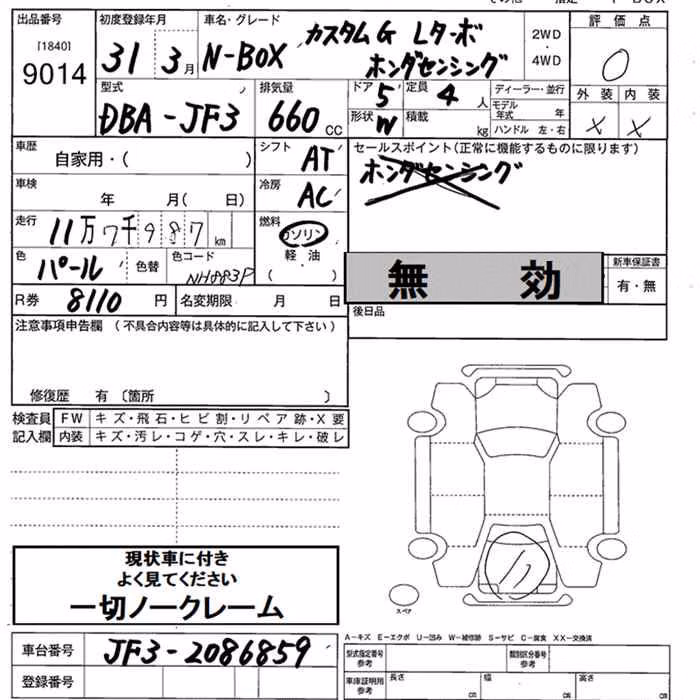 出品番号 初度登録年月 車名・グレード 評価点
[1840]
9014
31 3月 N-BOX カスタムG Lターボ
ホンダセンシング
2WD
・
4WD
0
型式 排気量 ドア 5 定員 4人 ディーラー・並行 外装 内装
DBA-JF3 660cc 形状 W 積載 kg モデル年式 年
ハンドル 左・右 × ×
車歴 自家用・( ) シフト AT セールスポイント(正常に機能するものに限ります)
ホンダセンシング
車検 年 月( 日) 冷房 AC
走行 11万7千987km 燃料 ガソリン
軽油
( )
色 パール 色替 色コード NH883P
無効 新車保証書
有・無
R券 8110円 名変期限 月 日 後日品
注意事項申告欄 (不具合内容等は具体的に記入して下さい)
修復歴 有 〔箇所 〕
検査員 FW キズ・飛石・ヒビ割・リペア跡・X要
記入欄 内装 キズ・汚レ・コゲ・穴・スレ・キレ・破レ
現状車に付き
よく見てください
一切ノークレーム
スペア
A-キズ E-エクボ U-凹み W-補修跡 S-サビ C-腐食 XX-交換済
車台番号 JF3-2086859 型式指定番号 参考 類別区分番号 参考
登録番号 車庫証明用 参考 長さ cm 幅 cm 高さ cm